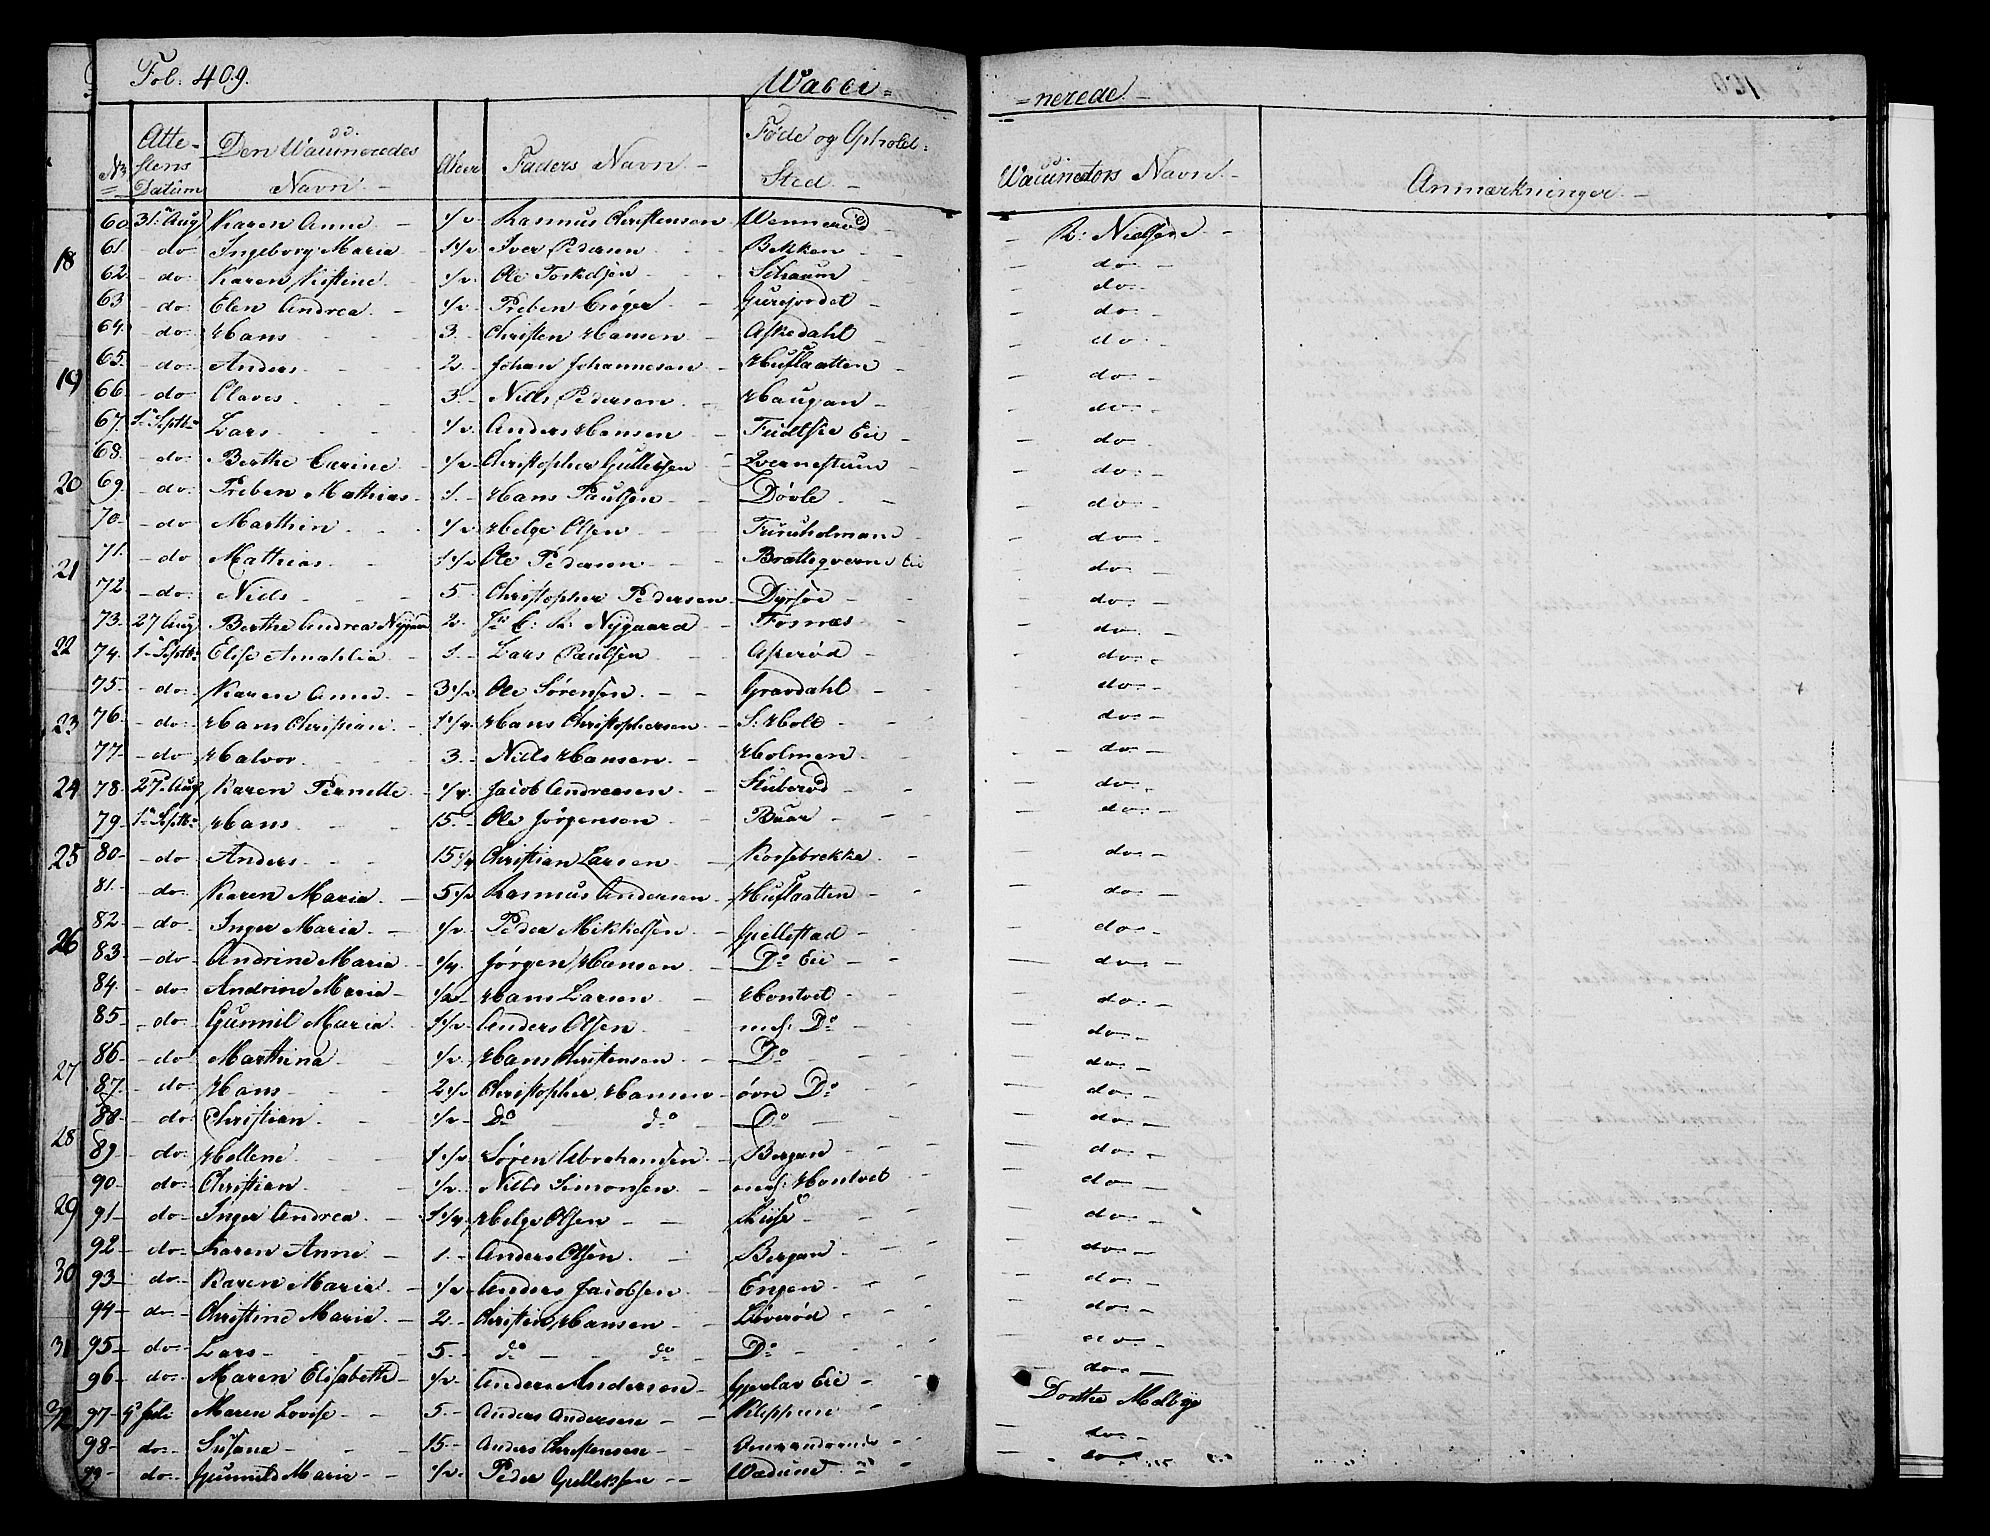 Fol. 409. Wacci=
=nerede.
No Attestens Datum Den Waccineredes Navn. Alder Faders Navn Føde og Opholds Sted. Waccinators Navn. Anmærkninger.
60. 31. Aug Karen Anne 1/2 Rasmus Christensen Wennerød R: Nielsen
61. do Ingeborg Maria 1 1/2 Iver Pedersen Bekken do
62. do Karen Kistine 1/2 Ole Torkelsen Schaum do
63. do Elen Andrea 1/2 Preben Crøger Gurejordet do
64. do Hans 3. Christen Hansen Askedahl do
65. do Anders 2. Johan Johannesen Huslaatten do
66. do Claves 3. Niels Pedersen Haugan do
67. 1. Septb. Lars 1/2 Anders Hansen Eie do
68. do Berthe Carine 1/2 Christopher Gullersen Qvernestuen do
69. do Preben Mathias 1. Hans Paulsen Døvle do
70. do Marthin 1/2 Helge Olsen Furuholmane do
71. do Mathias 1 1/2 Ole Pedersen Eie do
72. do Niels 5. Christopher Pedersen Dyrsøe do
73. 27 Aug Berthe Andrea Nygaard 2. C: R: Nygaard Fosnæs do
74. 1. Septb. Elise Amahlia 1. Lars Paulsen Askerød do
75. do Karen Anne 3 1/2 Ole Sørensen Gravdahl do
76. do Hans Christian 1 1/4 Hans Christophersen S: Holt do
77. do Halvor 3. Niels Hansen Holmen do
78. 27. Aug Karen Pernelle 1/4 Jacob Andreasen Stuberød do
79. 1. Septb. Hans 15. Ole Jørgensen Buar do
80. do Anders 15 1/4 Christian Larsen Korsebrekke do
81. do Karen Maria 5 1/2 Rasmus Andersen Huslaatten do
82. do Inger Maria 1/2 Peder Mikkelsen Gjellestad do
83. do Andrine Maria 1/4 Jørgen Hansen Do Eie do
84. do Andrine Maria Hans Larsen Hontvet do
85. do Gunnil Maria 1 1/2 Anders Olsen mel: Do do
86. do Marthina 1/2 Hans Christensen Do do
87. do Hans 2 1/2 Christopher Hansen øvre Do do
88. do Christian 1/2 Do do Do do
89. do Hellene 1 1/2 Søren Abrahamsen Bergan do
90. do Christian 1/2 Niels Simonsen mel: Hontvet do
91. do Inger Andrea 1 1/4 Helge Olsen do
92. do Karen Anne 1. Anders Olsen Bergan do
93. do Karen Maria 1/2 Anders Jacobsen Engen do
94. do Christine Maria 2. Christen Hansen Løverød do
95. do Lars 5. do do Do do
96. do Maren Elisabeth 1/2 Anders Andersen Eie do
97. Juli Maren Lovise 5. Anders Andersen Kleppene Dorthe Melbye
98. do Susana 15. Anders Christensen do
99. do Gunnild Marie 1/2 Peder Gulleksen do
18
19
20
21
22
23
24
25
26
27
28
29
30
31